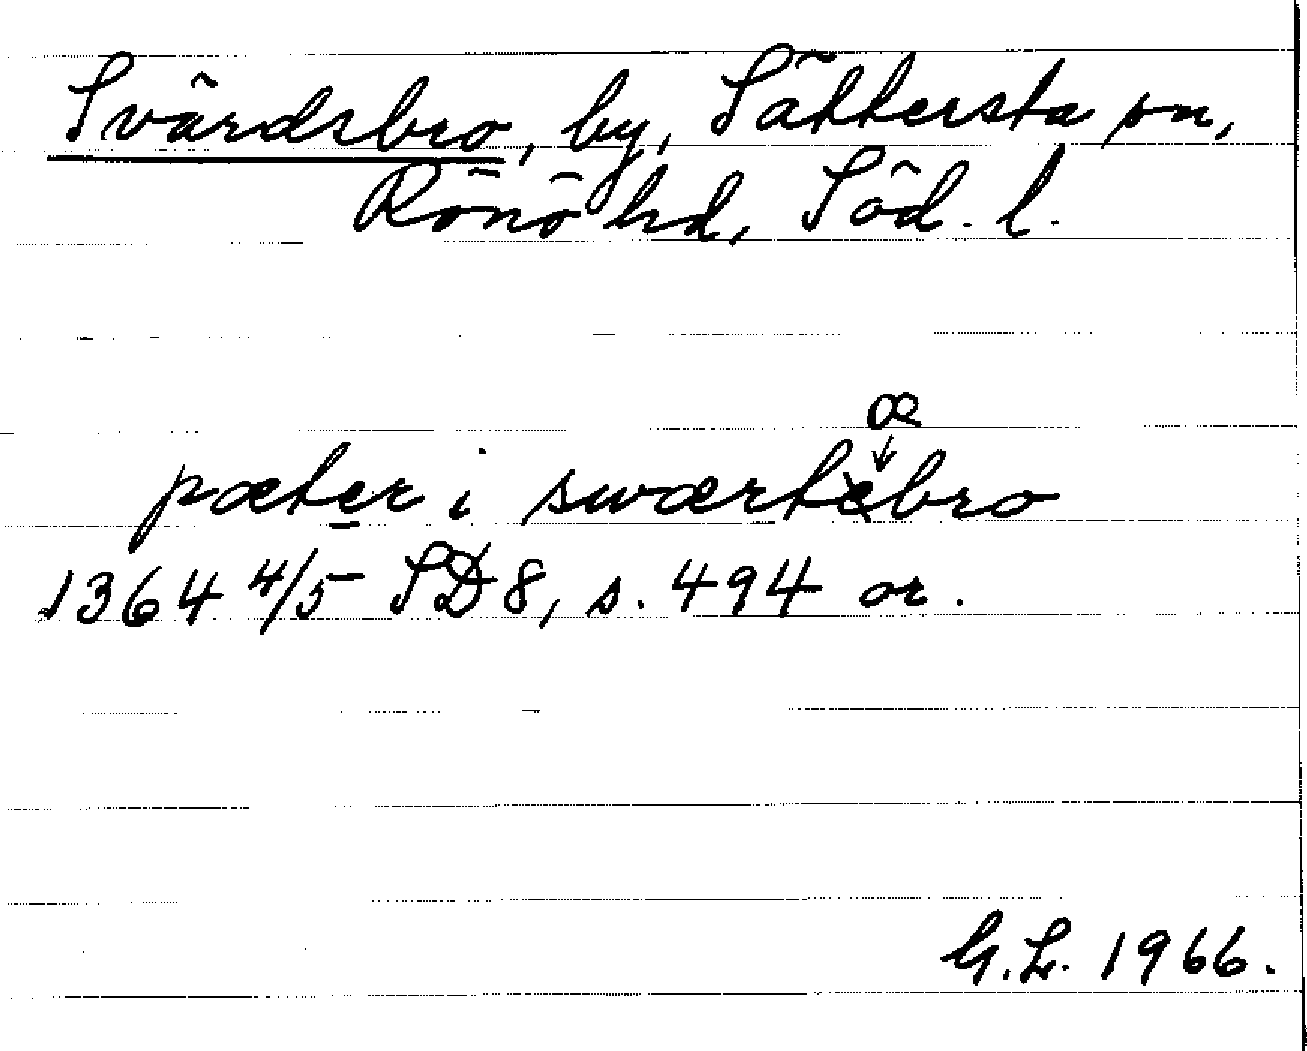 Svärdsbro, by, Sättersta sn,
Rönö hd, Söd. l.
æ
pæter i swærtebro
1364 4/5 SD 8, s. 494 or.
G.L. 1966.